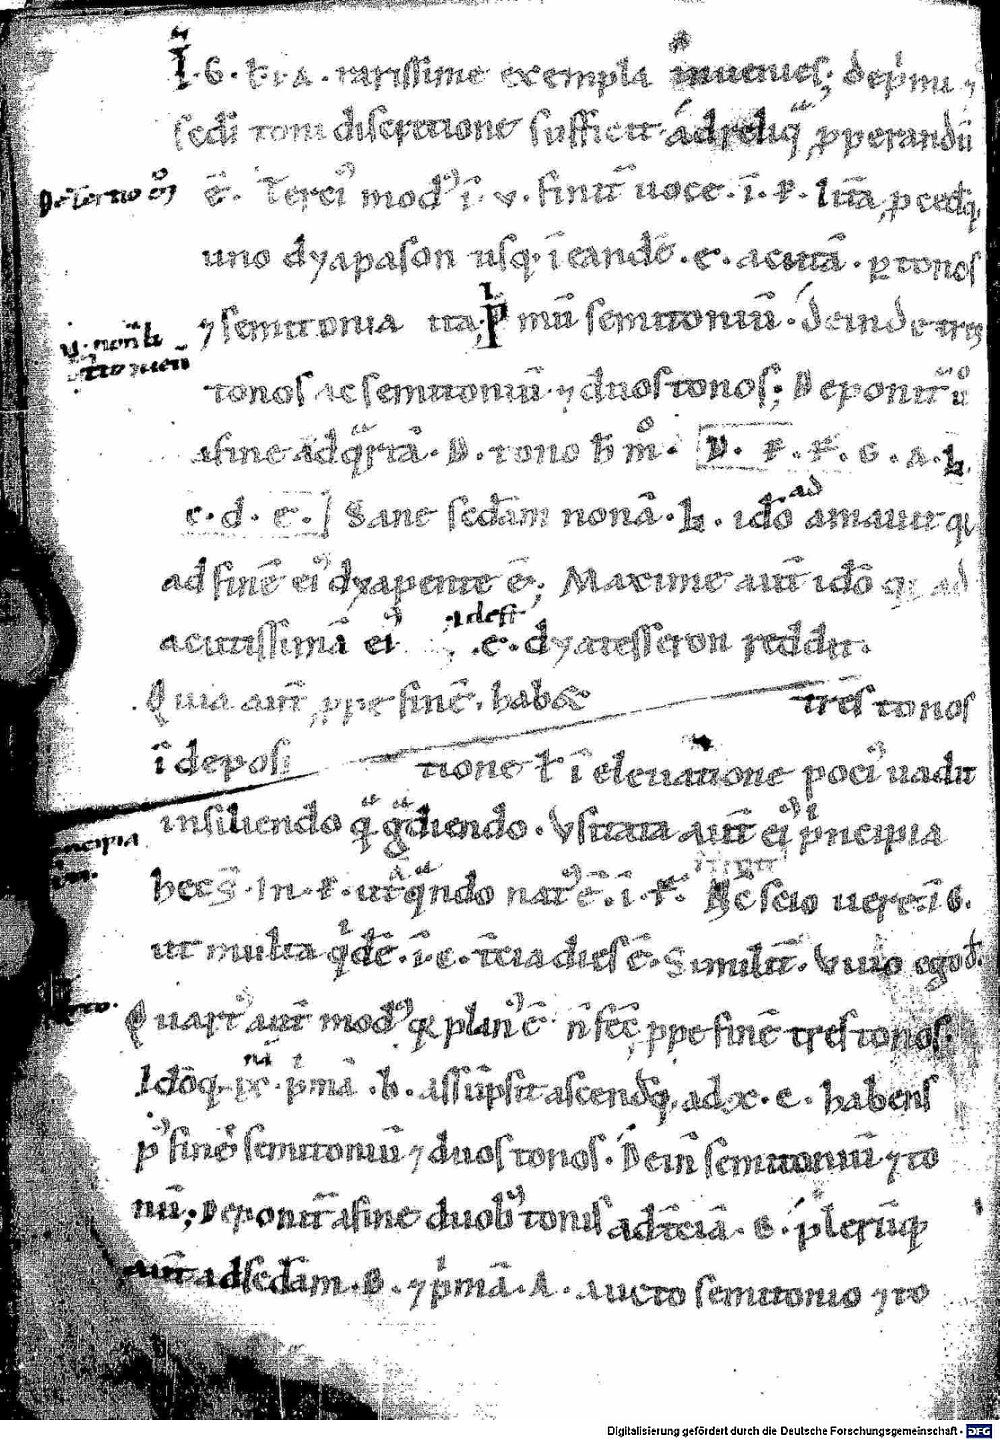 ĩ · G · ł · i · A · rarissime exempla inuenies; de p̍mi ⁊
sedi toni discretione sufficit · ad reliq̃ ꝓperandũ
De tertio
ẽ · Terci᾿ mod᾿ · ĩ · v · finit᷑ uoce · ĩ · F · lr̃a, ꝓcedq̃
uno dyapason usq · ĩ eandẽ · e · acutã · ꝑ tonos
⁊ semitonia ita · p̍mũ semitoniũ · deinde tres
tonos ac semitoniũ · ⁊ duos tonos; Deponit᷑ ů
a fine ad q̃rtã · D · tono h̄ m̊ · D · F · F · G · A · h
c · d · e · Sane sedam nonã · h · idõ ad amauit qi
ad finẽ ei᾿ dyapente ẽ; Maxime aut̃ idõ qi ad
acutissimã ei᾿ · idest · e · dyatesseron reddit ·
Quia aut̃ ꝓpe finẽ · habet tres tonos
ĩ deposi tione ł ĩ eleuatione poci᾿ uadit
insiliendo q̃ g̃diendo · Vsitata aut̃ ei᾿ p̍ncipia
ncipia
hec s̃ · In · F · ut q̃ndo nat᾿ ẽ · ĩ · F · H̃c scio uere · ĩ G ·
ut multa q̍dẽ · ĩ · c · t̃cia dies ẽ · Similit̃ · Viuo ego d̃ ·
Quart᾿ aut̃ mod᾿ qi plan᾿ ẽ ñ sec̃ ꝓpe finẽ tres tonos ·
Idõq · p̍mã · h · assũpsit ascendq̃, ad x · e · habens
p᾿ finẽ semitoniũ ⁊ duos tonos · Dein̄ semitoniũ ⁊ to
nũ; Deponit᷑ a fine duob᾿ tonis ad t̃ciã · G · plerũq
aut̃ ad sedam · B · ⁊ p̍mã · A · aucto semitonio ⁊ to
Digitalisierung gefördert durch die Deutsche Forschungsgemeinschaft - DFG